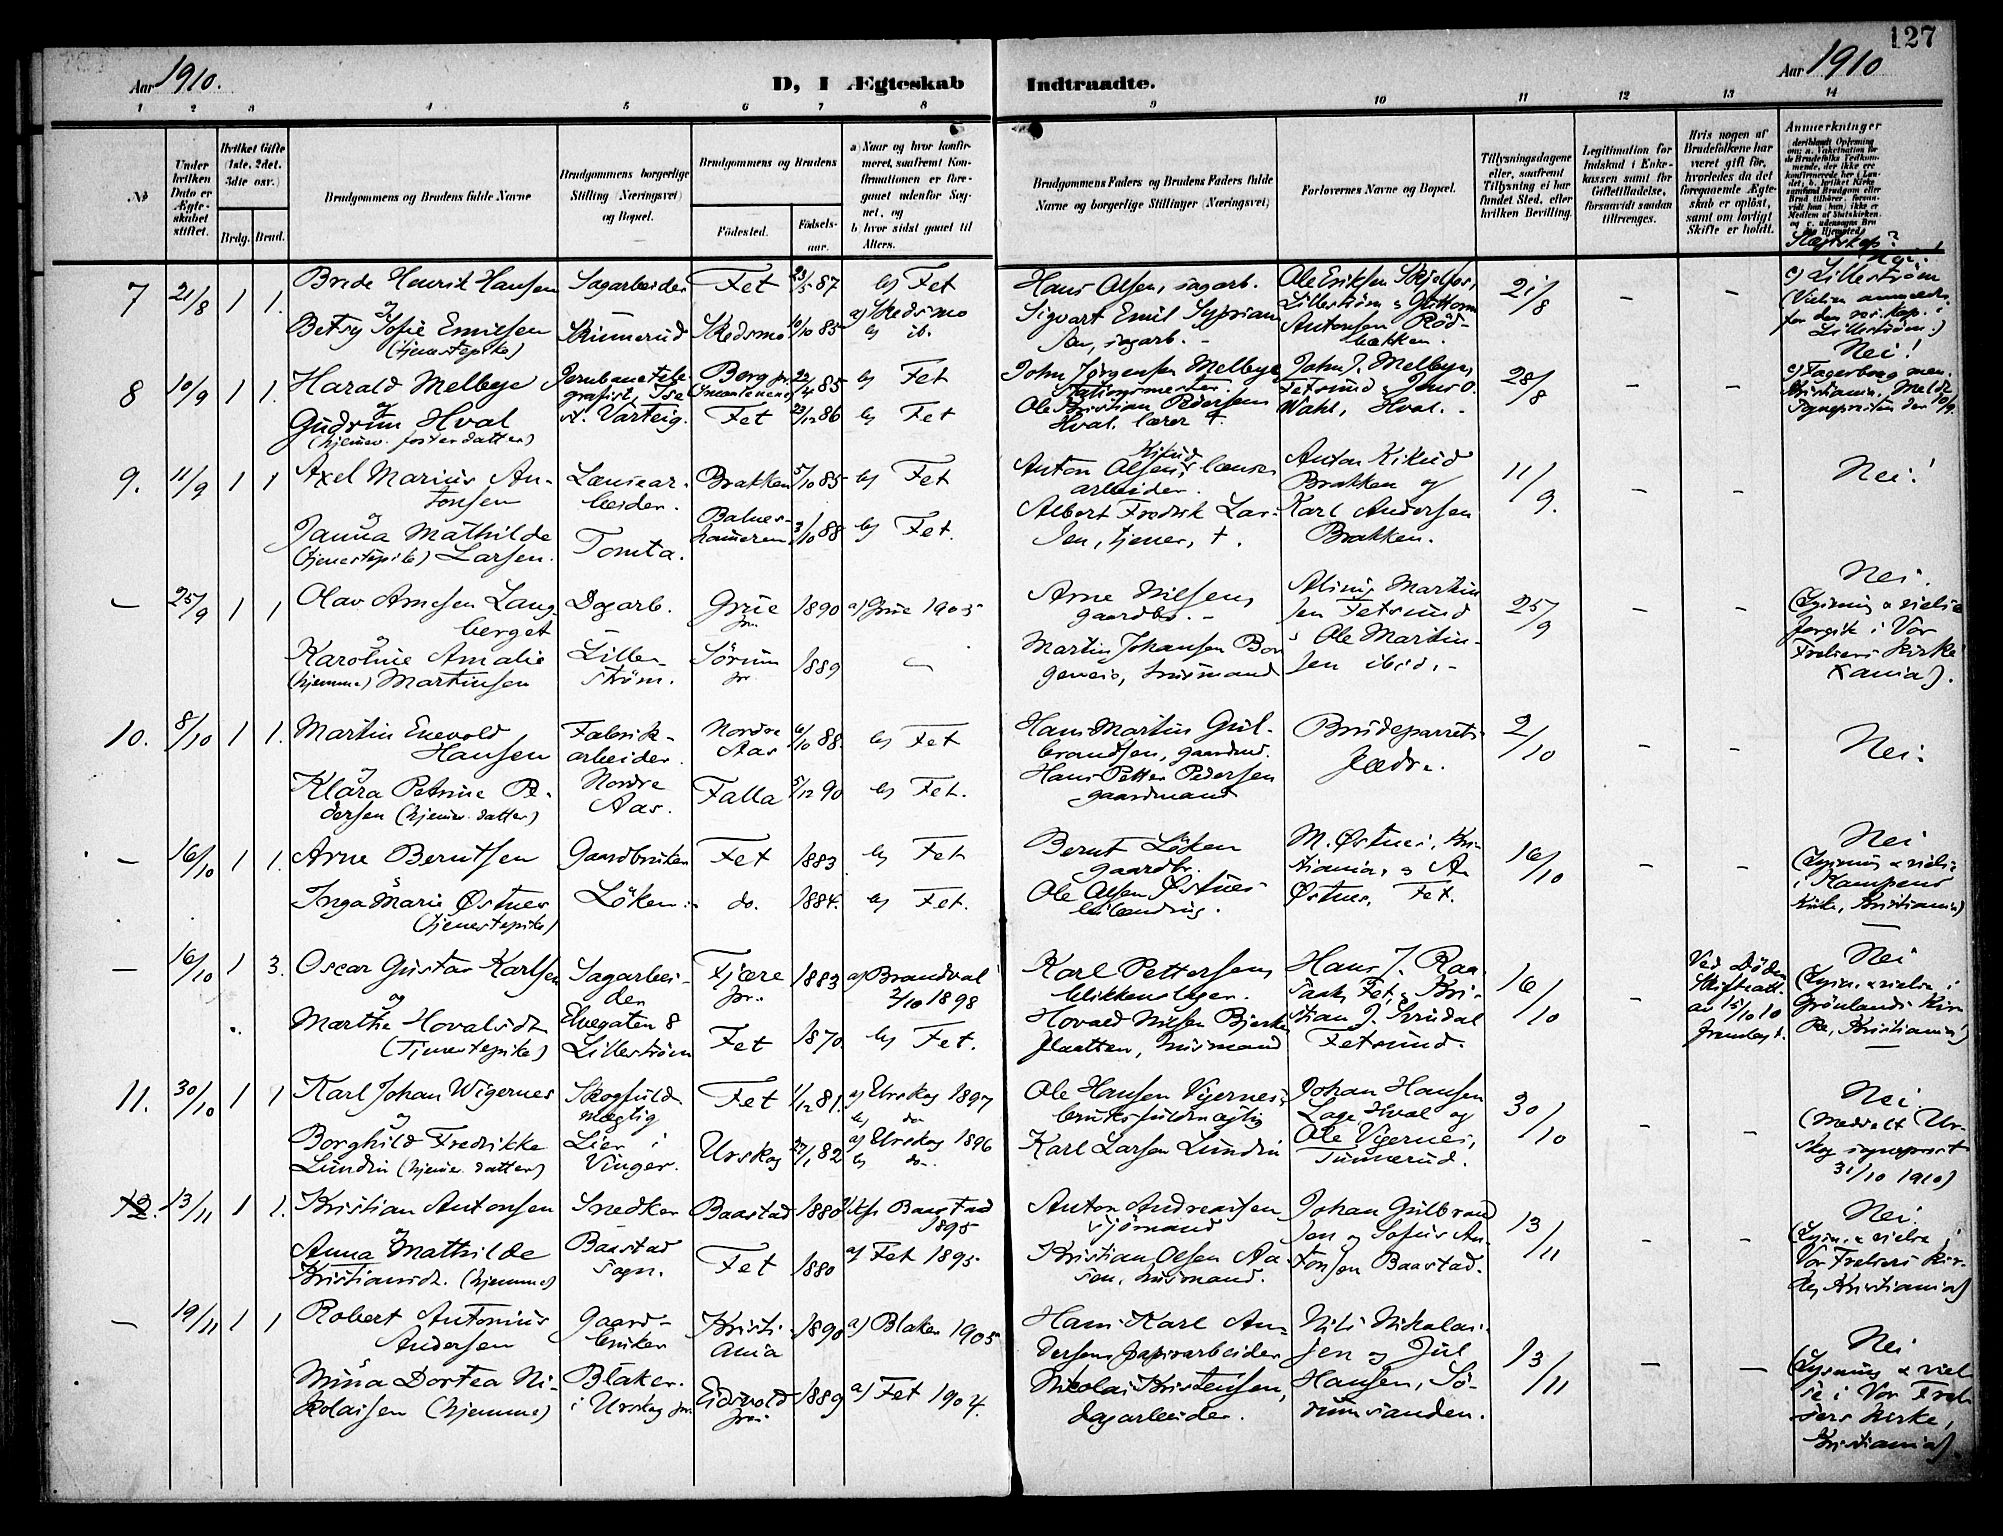 127
Aar 1910.
D, I Ægteskab Indtraadte.
Aar 1910
1 2 3 4 5 6 7 8 9 10 11 12 13 14
№
Under hvilken Dato er Ægteskabet stiftet.
Hvilket Gifte (1ste, 2det, 3die osv.)
Brdg. Brud.
Brudgommens og Brudens fulde Navne
Brudgommens borgerlige Stilling (Næringsvei) og Bopæl.
Brudgommens og Brudens
Födested.
Födsels-aar.
a) Naar og hvor konfirmeret, saafremt Konfirmationen er foregaaet udenfor Sognet, og
b. hvor sidst gaaet til Alters.
Brudgommens Faders og Brudens Faders fulde Navne og borgerlige Stillinger (Næringsvei)
Forlovernes Navne og Bopæl.
Tillysningsdagene eller, saafremt Tillysning ei har fundet Sted, efter hvilken Bevilling.
Legitimation for Indskud i Enkekassen samt for Giftetilladelse, forsaavidt saadan tiltrænges.
Hvis nogen af Brudefolkene har været gift för, hvorledes da det foregaaende Ægteskab er oplöst, samt om lovligt Skifte er holdt.
Anmerkninger
Slegtskap?
7 21/8 1 1. Brede Henrik Hansen Sagarbeider Fet 23/5 87 b) Fet Hans Olsen, sagarb. Ole Eriksen Skjelfos, 21/8 - - Nei!
c) Lillestrøm
og
Betsy Sofie Emilsen Skinnerud Skedsmo 10/10 85 a) Skedsmo Sigvart Emil Syprian Lillestrøm & Guttorm
(tjenestepike) b) ib. sen, sagarb. - Antonsen Rödbækken.
for den res. kap. i Lillestrøm.)
8 10/9 1 1. Harald Melbye Jernbanetelegrafist, Ise Borg pr. 22/4 85 b) Fet John Jörgensen Melbye, John J. Melbye, 28/8 - - Nei!
Stationsmester. Fetsund & Jens O.
og
Gudrun Hval st. Varteig. Fet 23/12 86 b) Fet Ole Kristian Pedersen Wahl, Hval. -
(hjemmev. fosterdatter) Hval, lærer †.
c) Fagerborg men. Kristiania. Meldt Sogneprösten den 10/9.
9. 11/9 1 1 Axel Marius Antonsen Lænsearbeider. Brakken 5/10 85 b) Fet Anton Olsen Kikud, lænsearbeider. Anton Kikud Brakken og 11/9. - - Nei!
og
Janna Mathilde Larsen. Tomta. Balnes- 3/10 88 b) Fet. Albert Fredrik Larsen, tjener, †. Karl Andersen Brakken.
(tjenestepike)
- 25/9 1 1 Olav Arnesen Langberget Dagarb. Grue pr. 1890 a) Grue 1905 Arne Nilsen, gaardbr. - Martinsen Fetsund 25/9 - - Nei.
og
Karoline Amalie Martinsen Lillestrøm. Sörum pr. 1889 - Martin Johansen husmand & Ole Martinsen ibid. -
(hjemme)
(Lysning & vielse foregik i Vor Frelsers kirke Xania).
10. 8/10 1 1. Martin Enevold Hansen Fabrikarbeider. Nordre Aas 6/10 88. b) Fet Hans Martin Gulbrandsen, gaardmd. Brudeparrets fædre. 2/10 - - Nei.
og
Klara Petrine Pedersen (hjemmev. datter) Nordre Aas. Falla 5/12 90 b) Fet. Hans Petter Pedersen gaardmand
- 16/10 1 1. Arne Berntsen Gaardbruker Fet 1883 b) Fet Bernt Löken gaardbr. M. Østnes, Kristiania, & A. 16/10 - - Nei
og
Inga Marie Østnes Löken. do. 1884. b) Fet. Ole Olsen Østnes Østnes, Fet.
(tjenestepike)
(Lysning & vielse i Kampens Kirke, Kristiania)
- 16/10 1 3. Oscar Gustav Karlsen Sagarbeider Fjære pr. 1883 a) Brandval 2/10 1898 Karl Pettersen, blikkenslager. Hans J. Raa- 16/10 - Ved Döden. Skifteatt. av 15/10 10 Nei
og
Marthe Hovalsdt. Elvegaten 8 Fet 1870. b) Fet. Hovald Nilsen Bjerke- husmand & Kristian J. Fetsund.
(Tjenestepike) Lillestrøm
(Lysn. & vielse i Grönlands Kirke, Kristiania)
11. 30/10 1 1 Karl Johan Wigernes Skogfuldmægtig Fet 1/12 81. a) Urskog 1897 b) do Ole Hansen Vigernes, bruksfuldmægtig Johan Hansen Lage Hval og 30/10 - - Nei
og
Borghild Fredrikke Lundin (hjemmev. datter) Lier i Vinger. Urskog 22/1 82 a) Urskog 1896 b) do. Karl Larsen Lundin Ole Vigernes, Tunnerud.
(Meddelt Urskog sogneprest 31/10 1910)
12. 13/11 1 1. Kristian Antonsen Snedker Baastad 1880 Baastad 1895 Anton Andreassen sjömand Johan Gulbrandsen og Sofus Antonsen Baastad. 13/11 - - Nei.
og
Anna Mathilde Kristiansdt. (hjemme) Baastad sogn. Fet 1880 a) Fet 1895. Kristian Olsen Aasen, husmand.
(Lysn. & vielse i Vor Frelsers Kirke, Kristiania)
- 19/11 1 1 Robert Antonius Andersen Gaardbruker Kristiania 1890 a) Blaker 1905 Hans Karl Andersen papirarbeider Nils Nikolaisen og Jul 13/11 - - Nei
og
Mina Dortea Nikolaisen (hjemme) Blaker i Urskog pr. Eidsvold pr. 1889 a) Fet 1904. Nikolai Kristensen, dagarbeider. Hansen, Sörumsanden.
(Lysning & vielse i Vor Frelsers Kirke, Kristiania)